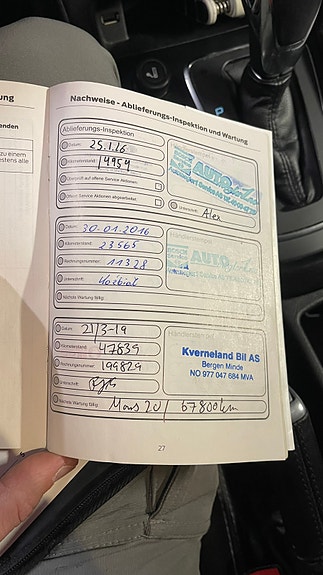 ung
enden
zu einem
estens alle
Nachweise - Ablieferungs-Inspektion und Wartung
Ablieferungs-Inspektion
Datum: 25.1.16
Kilometerstand: 14954
Überprüft auf offene Service Aktionen:
Offene Service Aktionen abgearbeitet:
AUTO
Unterschrift: Alex
Datum: 30-01-2016
Kilometerstand: 23565
Rechnungsnummer: 11328
Unterschrift:
Nächste Wartung fällig:
BOSCH
Service
AUTO
Datum: 21/3-19
Kilometerstand: 47839
Rechnungsnummer: 199829
Unterschrift:
Nächste Wartung fällig: Mars 20/ 67800km
Händlerstempel
Kverneland Bil AS
Bergen Minde
NO 977 047 684 MVA
27
P